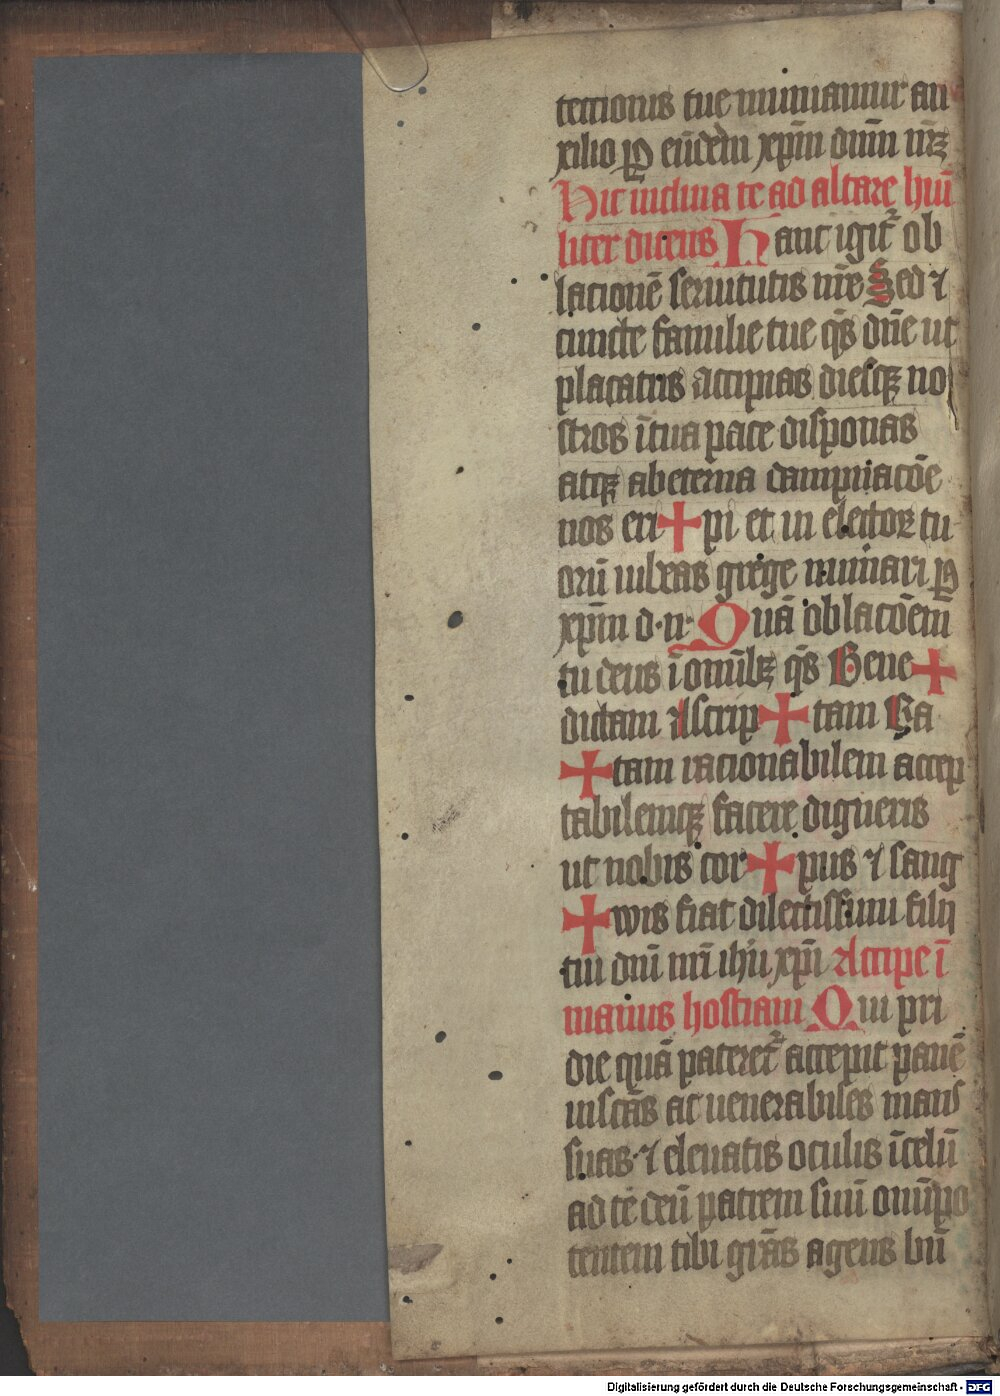 tectionis tue muniamur au
xilio ꝑ eūdem xp̄m dnm̄ nr̄ꝫ
Hic inclina te ad altare hūi
liter dicens Hanc igit᷑ ob
lacionē seruitutis nr̄e Sed ⁊
cuncte familie tue qs̄ dn̄e ut
placatus accipias diesqꝫ no
stros ītua pace disponas
atqꝫ abeterna dampnacōe
nos eri✚pi et in electoꝝ tu
orū iubeas grege nūmari ꝑ
xp̄m d·n· Quā oblacōem
tu deus ī omībꝫ qs̄ Bene✚
dictam Ascrip✚tam Ra
✚tam racionabilem accep
tabilemqꝫ facere digneris
ut nobis cor✚pus ⁊ sang
✚wis fiat dilectissimi filij
tui dnī nrī ihū xpī Accipe ī
manus hostiam Qui pri
die quā pateret᷑ accepit panē
in sctās ac uenerabiles manꝰ
suas·⁊ eleuatis oculis ī celū
ad te deū patrem suū omīpo
tentem tibi grās agens bn̄
Digitalisierung gefördert durch die Deutsche Forschungsgemeinschaft - DFG